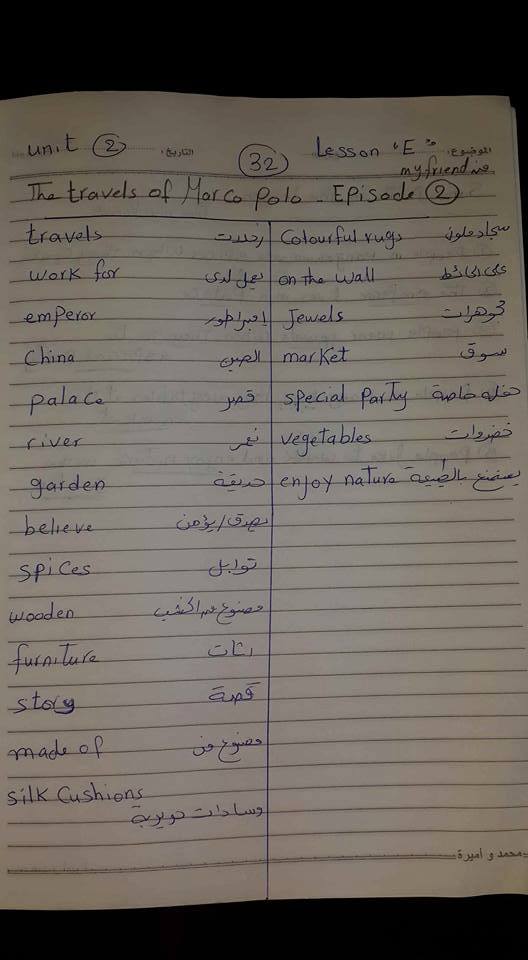 unit 2 التاريخ: 32 Lesson "E" الموضوع:
my friend
The travels of Marco Polo - Episode 2
travels رحلات
work for يعمل لدى
emperor إمبراطور
China الصين
palace قصر
river نهر
garden حديقة
believe يصدق/يؤمن
spices توابل
wooden مصنوع من الخشب
furniture اثاث
story قصة
made of مصنوع من
silk Cushions
وسادات حريرية
Colourful rugs سجاد ملون
on the wall على الحائط
Jewels مجوهرات
market سوق
special Party حفلة خاصة
vegetables خضروات
enjoy nature يستمتع بالطبيعة
محمد و أميرة